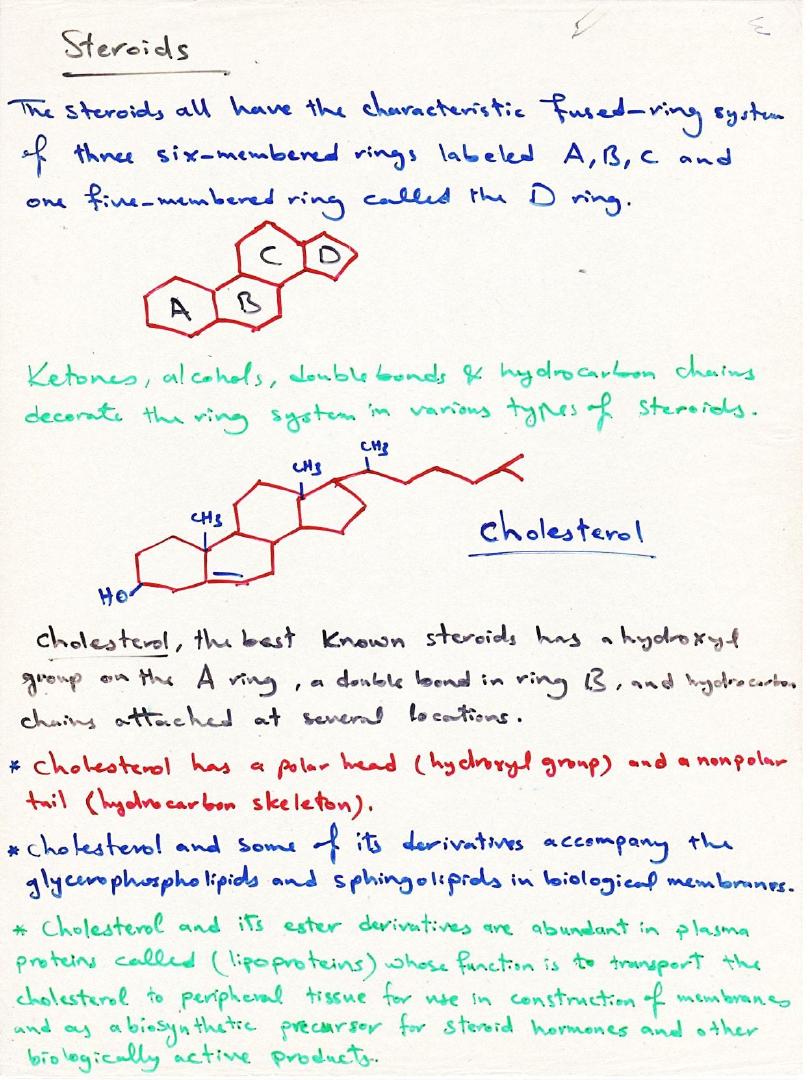 Steroids
The steroids all have the characteristic fused-ring system
of three six-membered rings labeled A, B, C and
one five-membered ring called the D ring.
C D
A B
Ketones, alcohols, double bonds & hydrocarbon chains
decorate the ring system in various types of steroids.
CH3
CH3
CH3
Cholesterol
HO
Cholesterol, the best known steroids has a hydroxyl
group on the A ring, a double bond in ring B, and hydrocarbon
chains attached at several locations.
* Cholesterol has a polar head (hydroxyl group) and a nonpolar
tail (hydrocarbon skeleton).
* Cholesterol and some of its derivatives accompany the
glycerophospholipids and sphingolipids in biological membranes.
* Cholesterol and its ester derivatives are abundant in plasma
proteins called (lipoproteins) whose function is to transport the
cholesterol to peripheral tissue for use in construction of membranes
and as a biosynthetic precursor for steroid hormones and other
biologically active products.